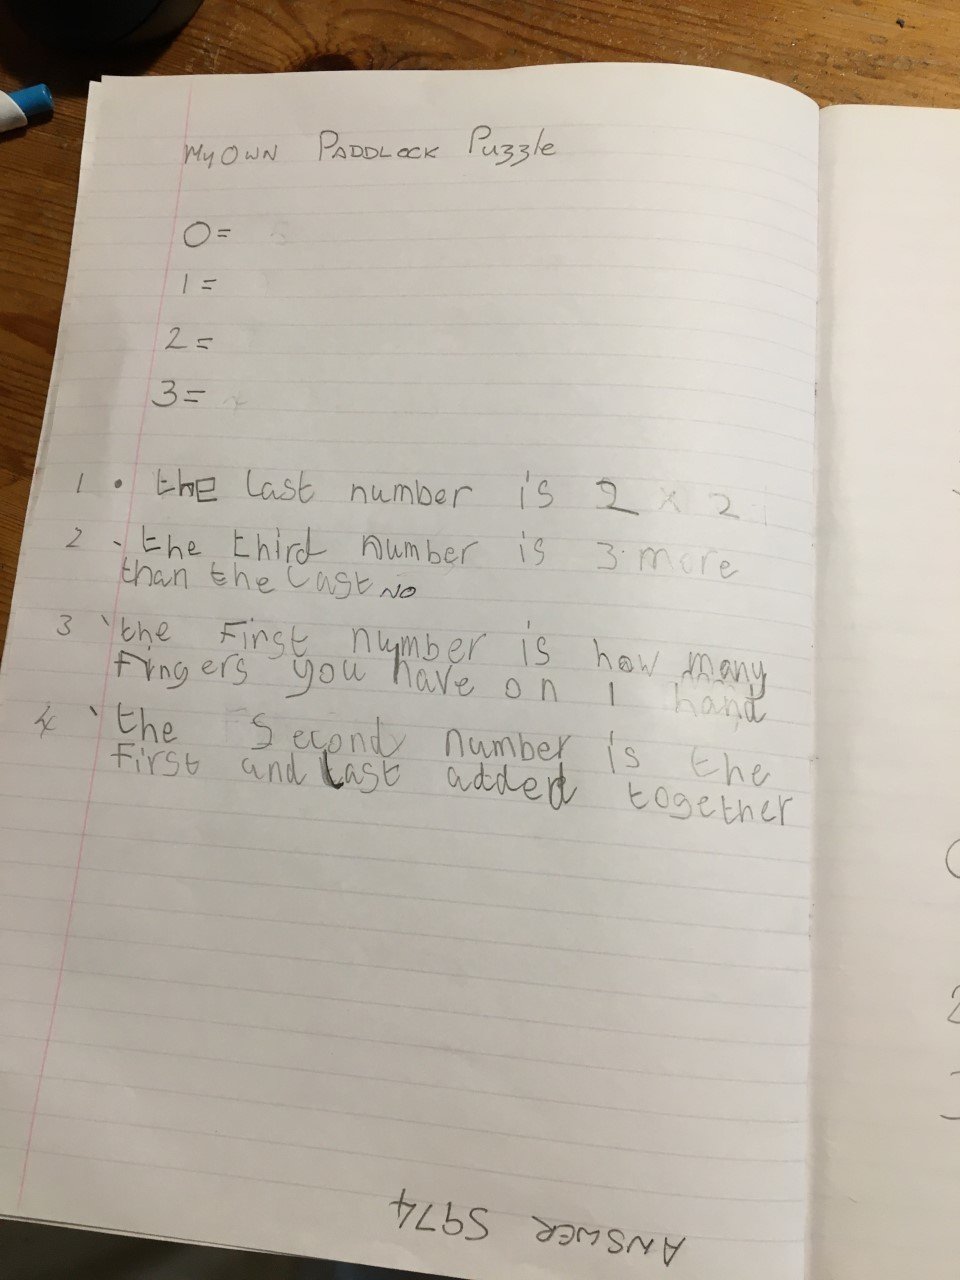 My OWN PADDLOCK Puzzle
0=
1=
2=
3=
1 . the last number is 2 x 2
2 . the third number is 3 more
than the last NO
3 the First number is how many
Fingers you have on 1 hand
4 the Second number is the
First and Last added together
ANSWER 5974